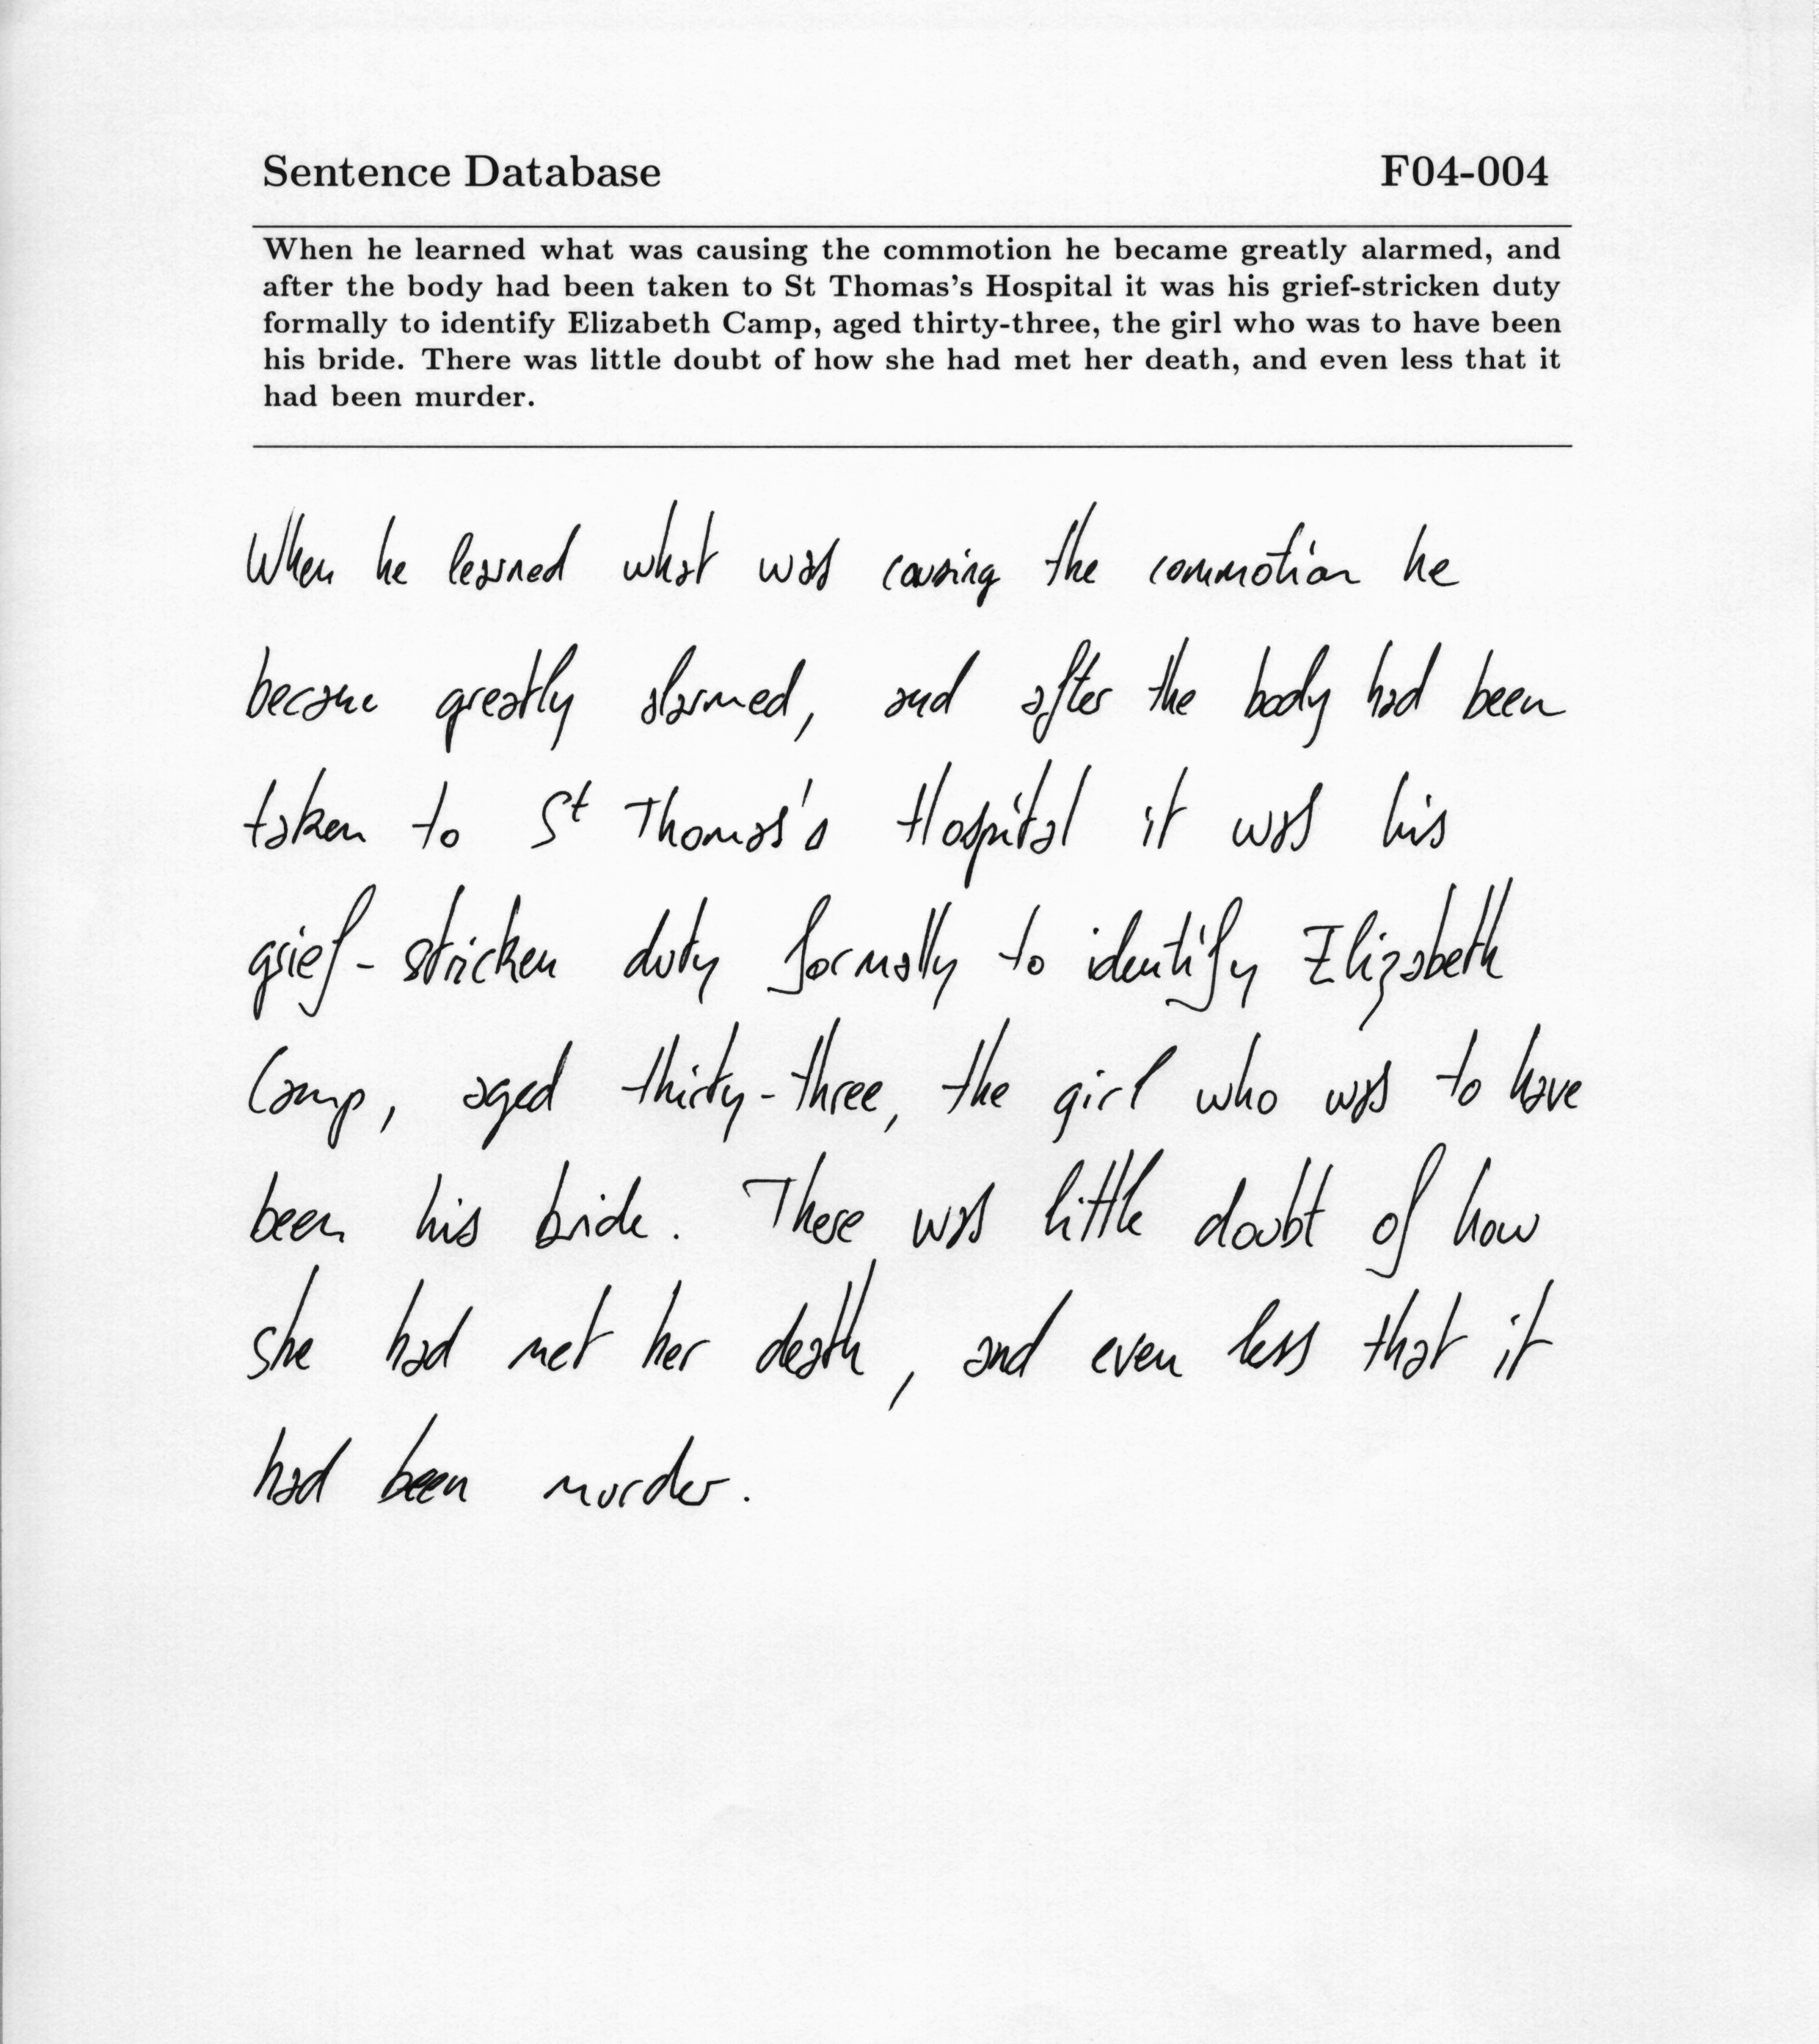 Sentence Database F04-004
When he learned what was causing the commotion he became greatly alarmed, and
after the body had been taken to St Thomas's Hospital it was his grief-stricken duty
formally to identify Elizabeth Camp, aged thirty-three, the girl who was to have been
his bride. There was little doubt of how she had met her death, and even less that it
had been murder.
When he learned what was causing the commotion he
became greatly alarmed, and after the body had been
taken to St Thomas's Hospital it was his
grief-stricken duty formally to identify Elizabeth
Camp, aged thirty-three, the girl who was to have
been his bride. There was little doubt of how
she had met her death, and even less that it
had been murder.